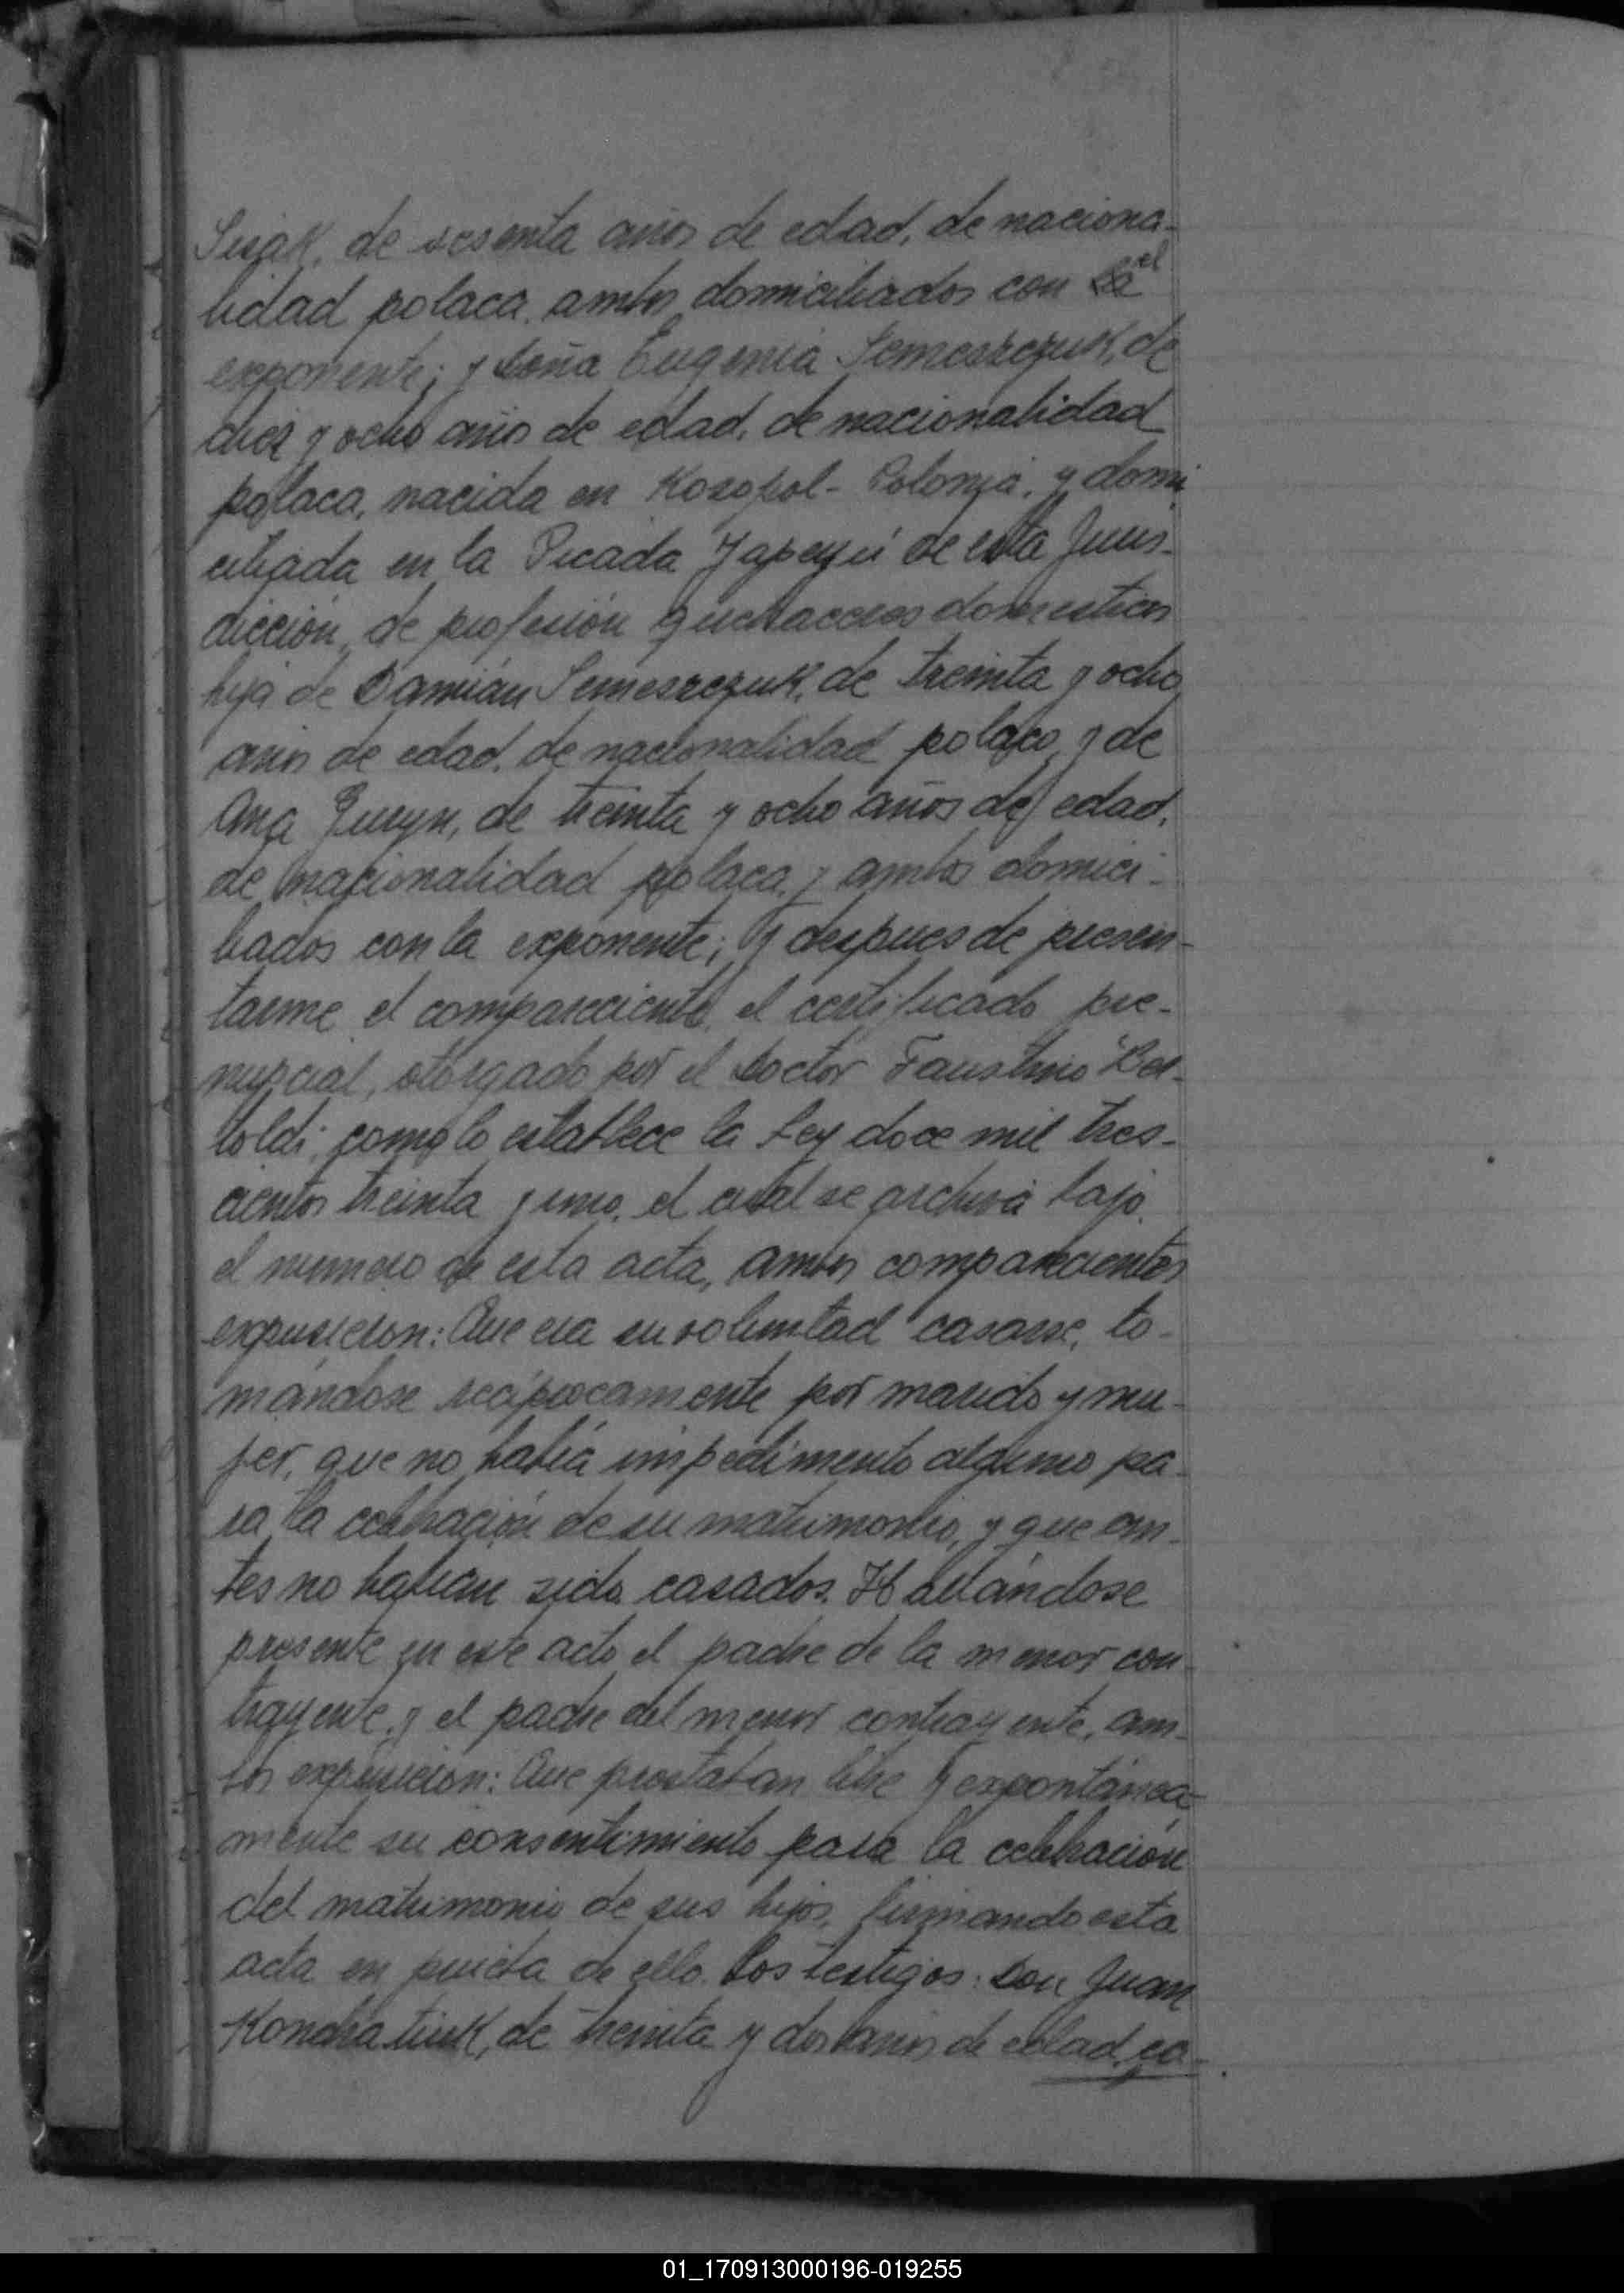 Susak, de sesenta años de edad, de naciona-
lidad polaca, ambos domiciliados con la el
exponente; y doña Eugenia Semeszczuk, de
diez y ocho años de edad, de nacionalidad
polaca, nacida en Kosopol- Polonia, y domi
ciliada en la Picada Yapeyú de esta Juris-
dicción, de profesión quehaceres domesticos
hija de Damián Semeszczuk, de treinta y ocho
años de edad, de nacionalidad polaco, y de
Ana Juryn, de treinta y ocho años de edad,
de nacionalidad polaca, y ambos domici-
liados con la exponente; Y despues de presen-
tarme el compareciente, el certificado pre-
nupcial, otorgado por el Doctor Faustino Ber-
toldi; como lo establece la Ley doce mil tres-
cientos treinta y uno, el cual se archiva bajo
el numero de esta acta, ambos comparecientes
expusieron: Que era su voluntad casarse, to-
mándose recíprocamente por marido y mu-
jer, que no había impedimento alguno pa-
ra la celebración de su matrimonio, y que an-
tes no habían sido casados. Hallándose
presente en este acto el padre de la menor con-
trayente, y el padre del menor contrayente, am-
bos expusieron: Que prestaban libre y expontánea-
mente su consentimiento para la celebración
del matrimonio de sus hijos, firmando esta
acta en prueba de ello. Los testigos: Don Juan
Kondratiuk, de treinta y dos años de edad, ca-
01_170913000196-019255